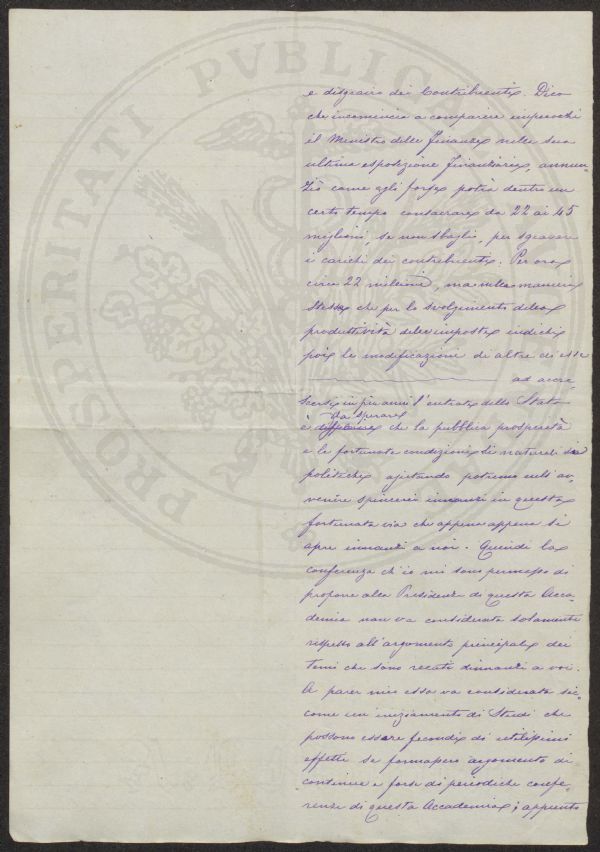 PROSPERITATI PVBLICAE
e disgravio dei Contribuenti. Dico
che incomincia a comparire imperocchè
il Ministro delle Finanze nella sua
ultima esposizione finanziaria, annun
ziò come egli forse potrà dentro un
certo tempo consacrare da 22 ai 45
miglioni, se non sbaglio, per sgravare
i carichi dei contribuenti. Per ora
circa 22 milioni, ma nella maniera
stessa che per lo svolgimento della
produttività delle imposte indichi
poi le modificazioni di altre di esse
ad accre
scersi in più anni l'entrata dello Stato
da sperare
è che la pubblica prosperità
e le fortunate condizioni sì naturali sia
politiche, ajutando potremo nell'av
venire spingerci innanzi in questa
fortunata via che appena appena si
apre innanzi a noi. Quindi la
conferenza ch'io mi sono permesso di
proporre alla Presidenza di questa Acca
demia non va considerata solamente
rispetto all'argomento principale dei
temi che sono recati dinnanzi a voi.
A parer mio essa va considerata sic
come un iniziamento di Studi che
possono essere fecondi di utilissimi
effetti se formassero argomento di
continue e forse di periodiche confe
renze di questa Accademia; appunto